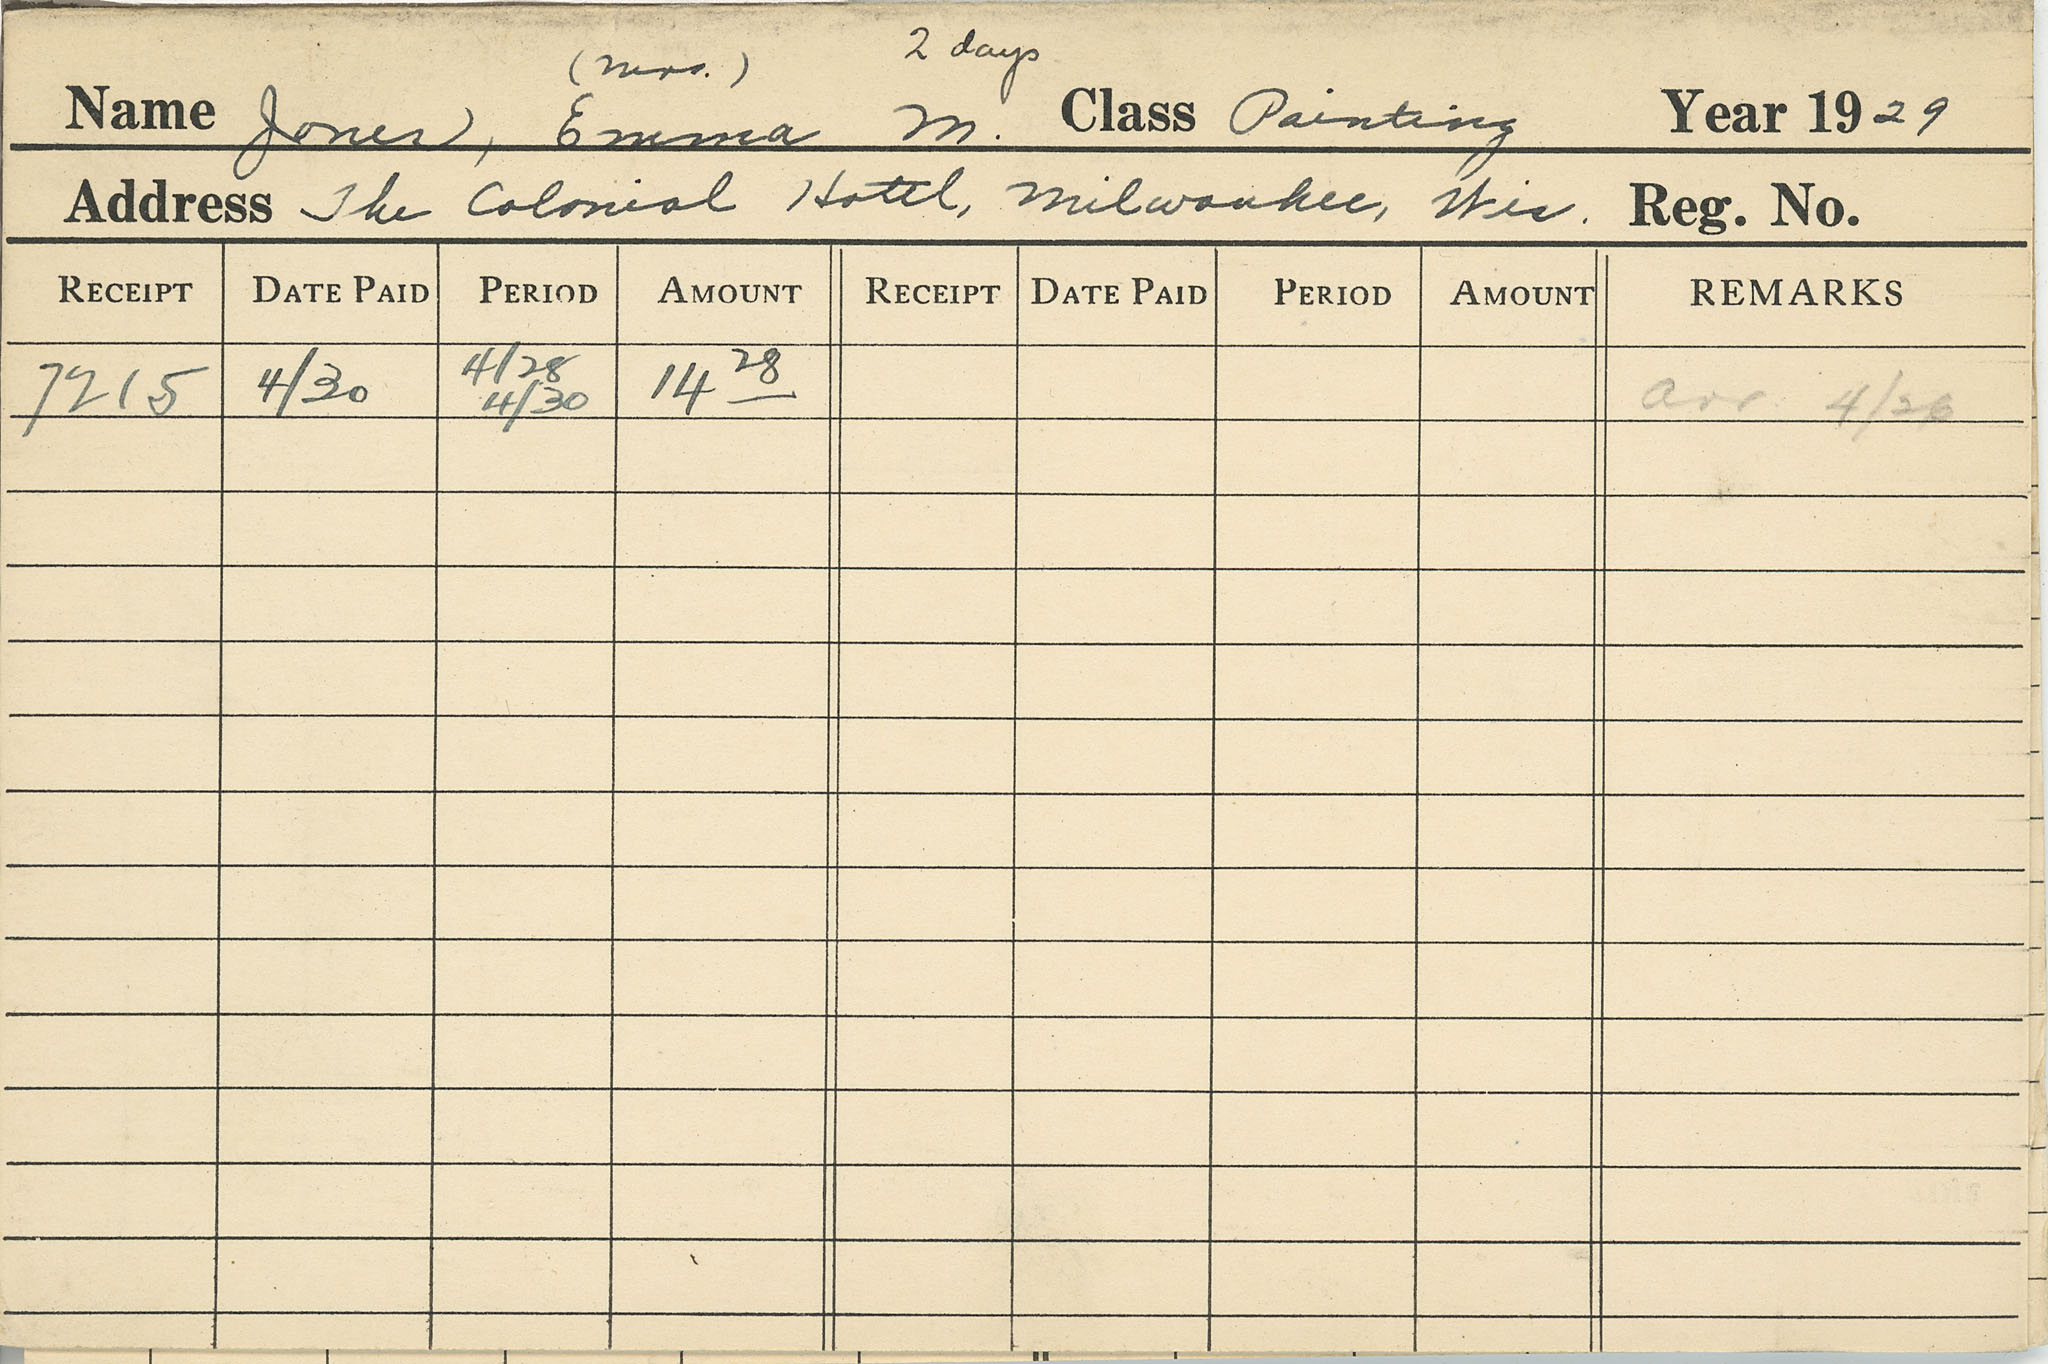 (Mrs.) 2 days
Name Jones, Emma M. Class Painting Year 1929
Address The Colonial Hotel, Milwaukee, Wis. Reg. No.
RECEIPT DATE PAID PERIOD AMOUNT RECEIPT DATE PAID PERIOD AMOUNT REMARKS
7215 4/30 4/28 14 28 Arr. 4/26
4/30